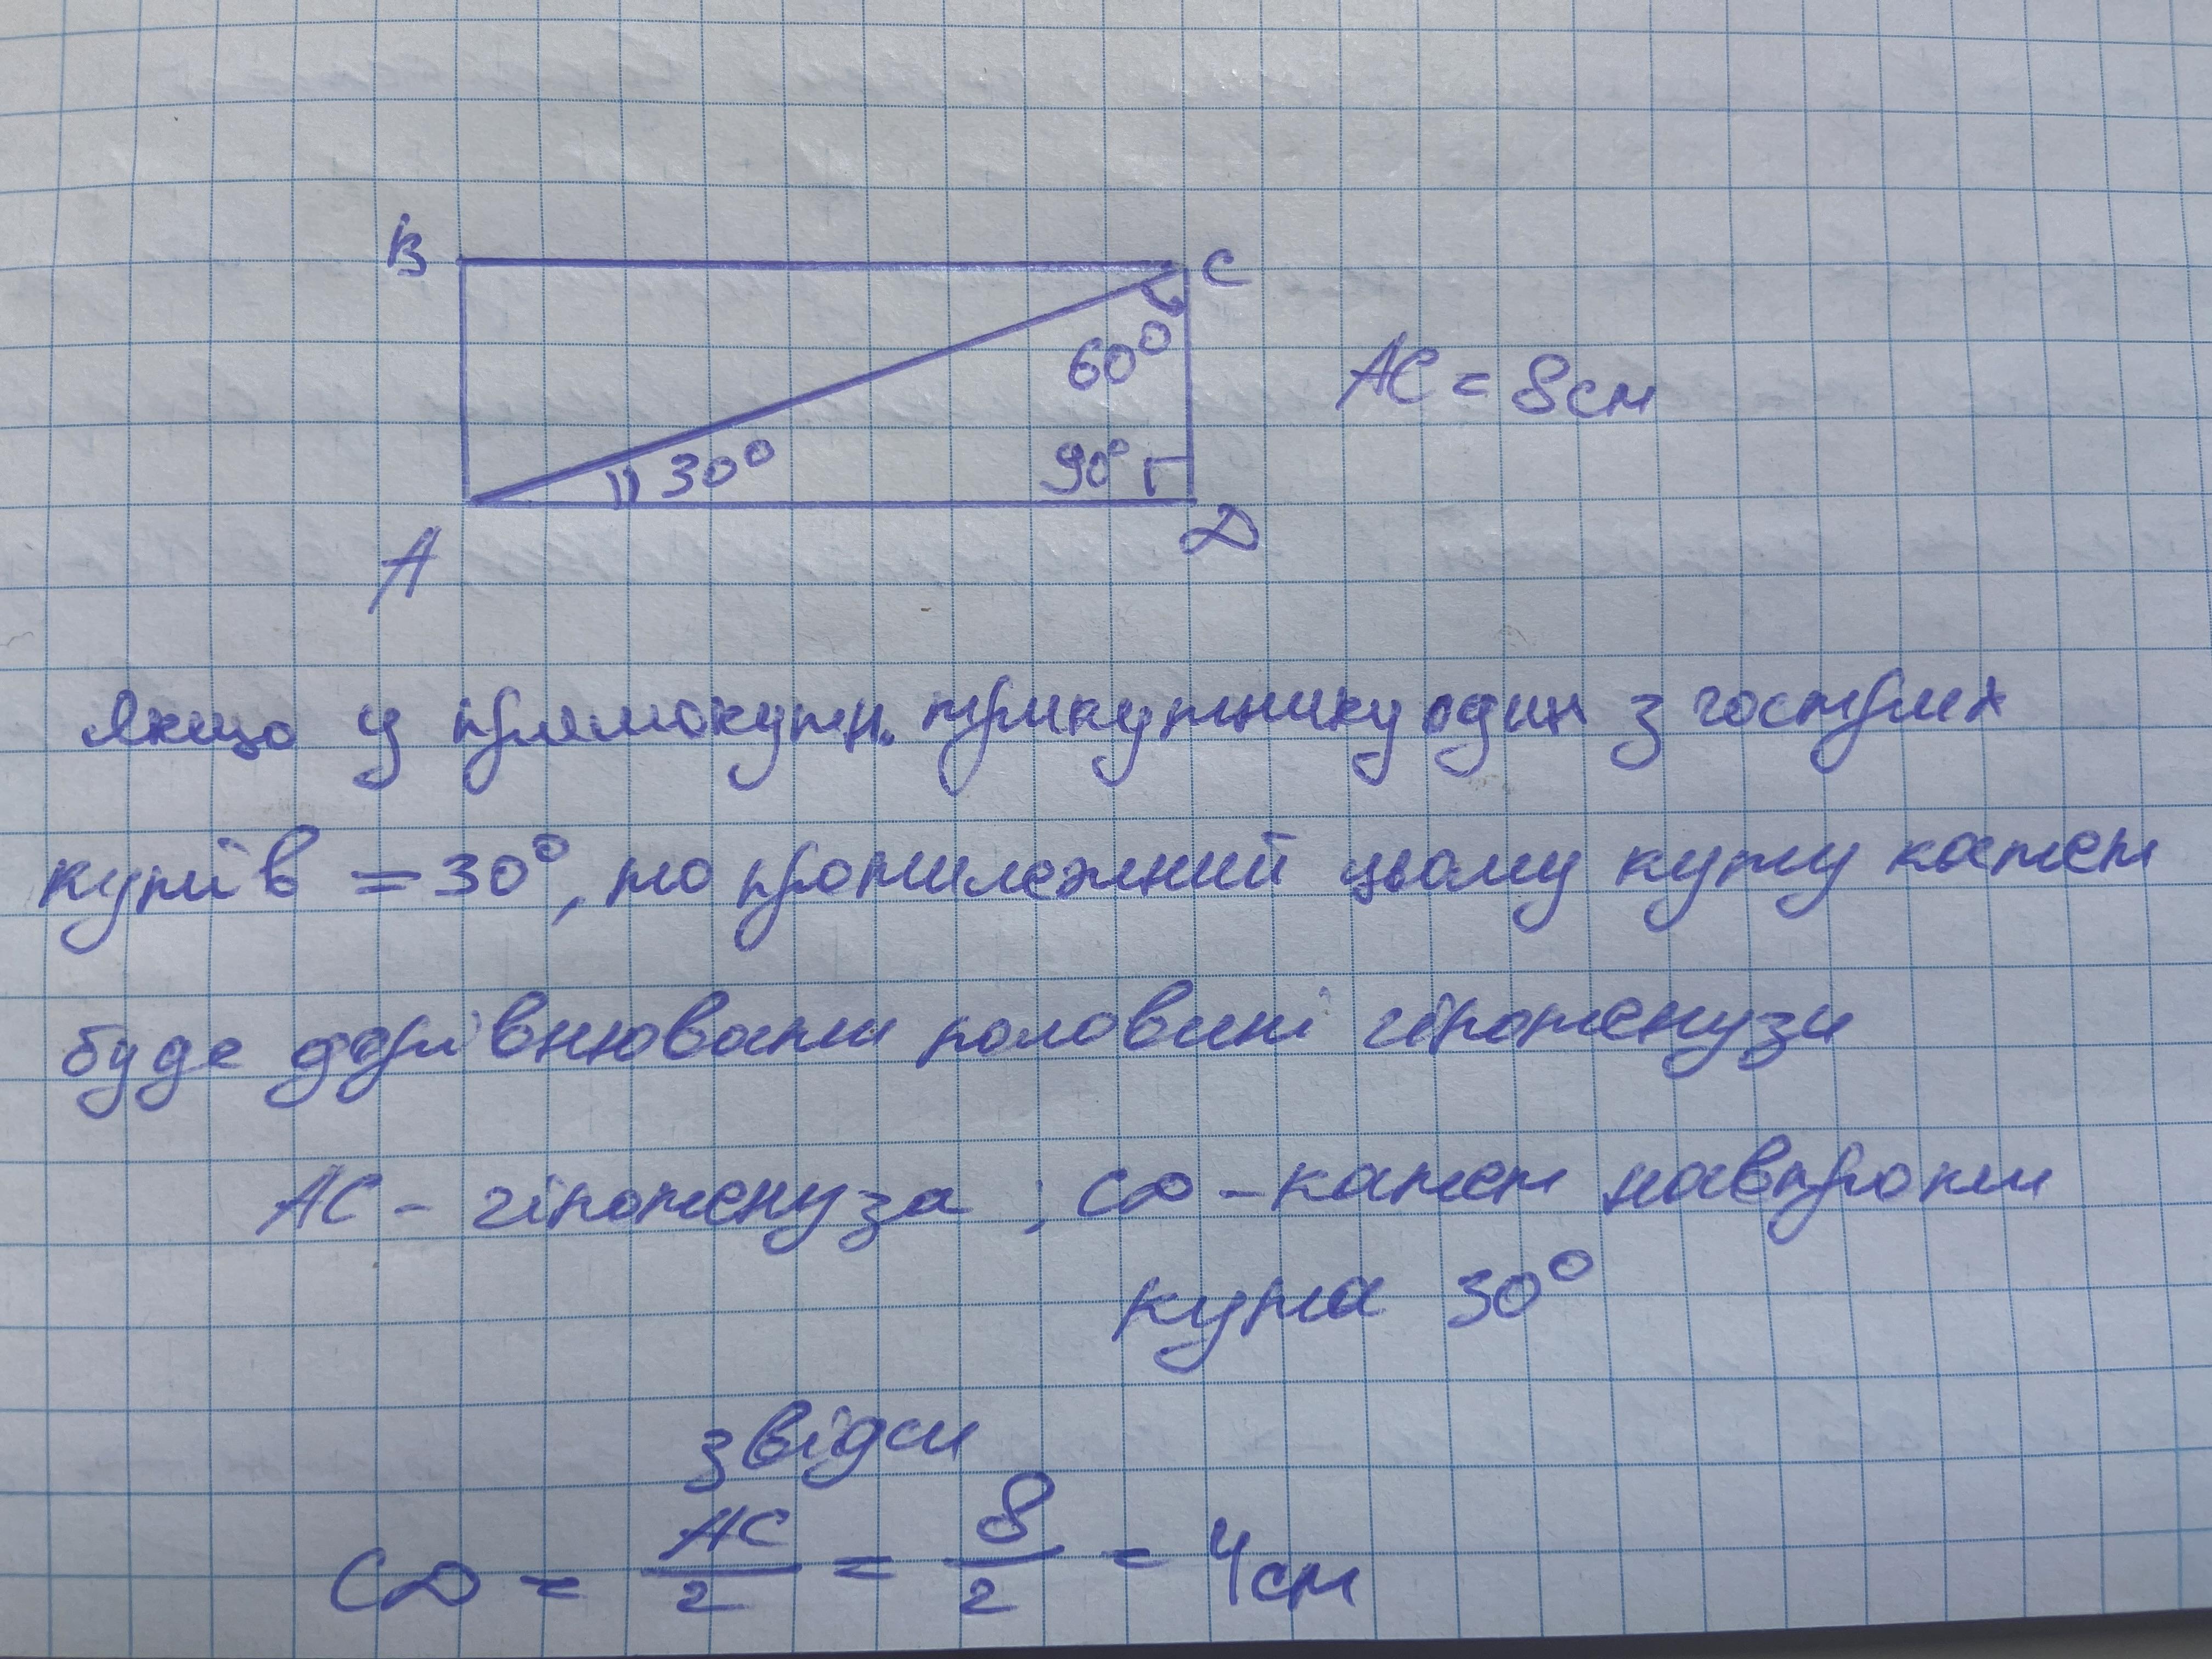 В
С
60°
АС = 8см
30°
90°
А
D
якщо у прямокутн. трикутнику один з гострих
кутів = 30°, то протилежний цьому куту катет
буде дорівнювати половині гіпотенузи
АС - гіпотенуза ; CD - катет навпроти
кута 30°
звідси
CD = АС/2 = 8/2 = 4см